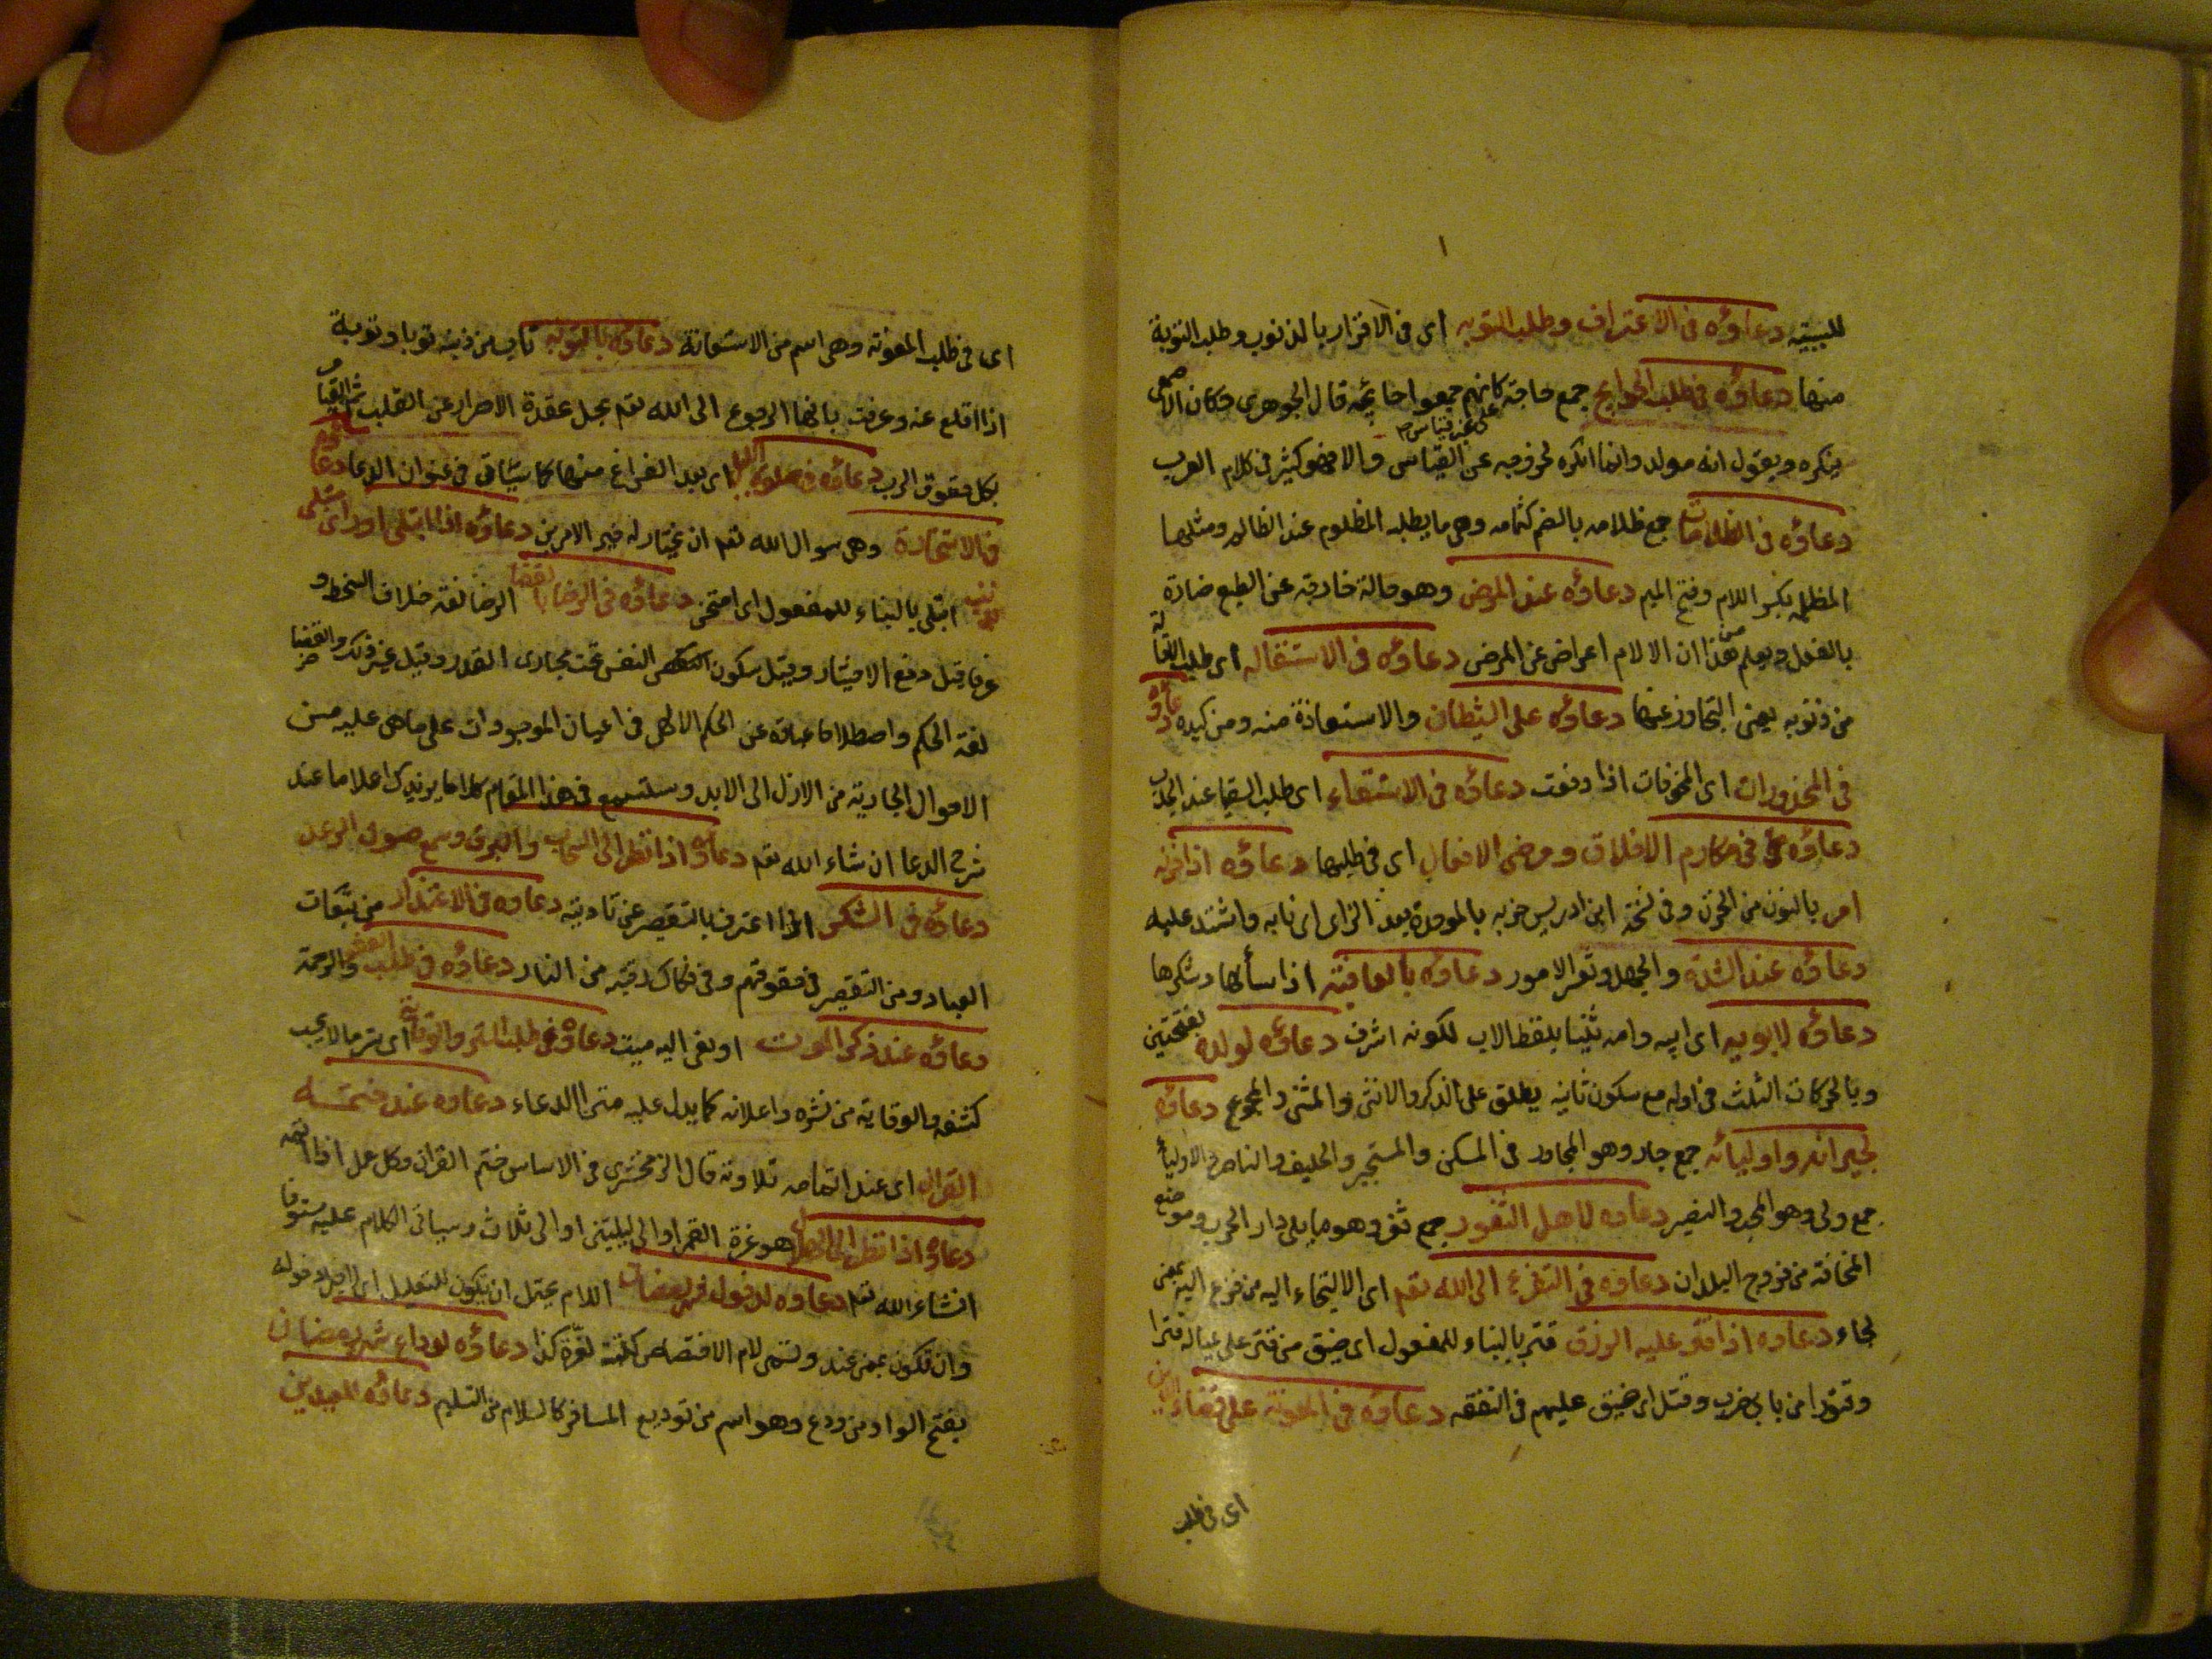 للبيته دعاؤه فى الاعتراف وطلب التوبه اى فى الاقرار بالذنوب وطلب التوبة
منها دعاؤه فى طلب الحوايج جمع حاجة كانهم جمعوا حائجة قال الجوهرى وكان الاصمعى
على غير قياس
ينكره ويقول انه مولد وانما انكره لخروجه عن القياس والا فهو كثير فى كلام العرب
دعاؤه فى الظلامات جمع ظلامه بالضم كثمامه وهى ما يطلبه المظلوم عند الظالم ومثلها
المظلمه بكسر اللام وفتح الميم دعاؤه عند المرض وهو حالة خارجة عن الطبع ضارة
بالفعل ويعلم من هذا ان الالام اعراض عن المرض دعاؤه فى الاستقاله اى طلب الاقالة
من ذنوبه يعنى التجاوز عنها دعاؤه على الشيطان والاستعاذة منه ومن كيده دعاؤه
فى المحذورات اى المخوفات اذا دفعت دعاؤه فى الاستسقاء اى طلب السقيا عند الجدب
دعاؤه فى مكارم الاخلاق ومرضى الافعال اى فى طلبها دعاؤه اذا حزنه
امر بالنون من الحزن وفى نسخة ابن ادريس حزبه بالموحدة بعد الزاى اى نابه واشتد عليه
دعاؤه عند الشدة والجهد وتعسر الامور دعاؤه بالعافية اذا سألها وشكرها
دعاؤه لابويه اى ابيه وامه ثنيا بلفظ الاب لكونه اشرف دعاؤه لولده بفتحتين
وبالحركات الثلث فى اوله مع سكون ثانيه يطلق على الذكر والانثى والمثنى والمجموع دعاؤه
لجيرانه واوليائه جمع جار وهو المجاور فى المسكن والمستجير والحليف والناصر والاولياء
جمع ولى وهو المحب والنصير دعاوه لاهل الثغور جمع ثغر وهو ما يلى دار الحرب وموضع
المخافة من فروج البلدان دعاؤه فى التفزع الى الله تعم اى الالتجاء اليه من فزع اليه بمعنى
لجاء دعاوه اذا قتر عليه الرزق قتر بالبناء للمفعول اى ضيق من قتر على عياله قترا
وقتورا من بابى ضرب وقتل اى ضيق عليهم فى النفقه دعاؤه فى المعونة على قضاء الدين
اى فى طلب
اى فى طلب المعونة وهى اسم من الاستعانة دعاؤه بالتوبه تاب من ذنبه توبا وتوبة
اذا اقلع عنه وعرفت بانها الرجوع الى الله تعم بحل عقدة الاصرار عن القلب ثم القيام
بكل حقوق الرب دعاؤه فى صلوة الليل اى بعد الفراغ منها كما سياتى فى عنوان الدعا دعاؤه
فى الاستخارة وهى سوال الله تعم ان يختار له خير الامرين دعاؤه اذا ابتلى او راى مبتلى
بذنب ابتلى بالبناء للمفعول اى امتحن دعاؤه فى الرضا بالقضا الرضا لغة خلاف السخط و
عرفا قيل رفع الاختيار وقيل سكون النفس تحت مجارى القدر وقيل غير ذلك والقضا
لغة الحكم واصطلاحا عبارة عن الحكم الالهى فى اعيان الموجودات على ما هى عليه من
الاحوال الجارية من الازل الى الابد وستسمع فى هذا المقام كلاما يزيدك اعلاما عند
شرح الدعا ان شاء الله تعم دعاؤه اذا نظر الى السحاب والبرق وسمع صوت الرعد
دعاؤه فى الشكر اذا اعترف بالتقصير عن تاديته دعاوه فى الاعتذار من تبعات
العباد ومن التقصير فى حقوقهم وفى فكاك رقبته من النار دعاؤه فى طلب العفو والرحمة
دعاؤه عند ذكر الموت او نعى اليه ميت دعاؤه فى طلب الستر والوقاية اى ستر ما لا يحب
كشفه والوقاية من نشره واعلانه كما يدل عليه متن الدعاء دعاوه عند ختمه
القران اى عند اتمامه تلاوة قال الزمخشرى فى الاساس ختم القران وكل عمل اذا اتمه
دعاؤه اذا نظر الى الهلال وهو غرة القمر او الى ليلتين او الى ثلاث وسياتى الكلام عليه مستوفا
انشاء الله تعم دعاوه لدخول شهر رمضان اللام يحتمل ان يكون للتعليل اى لاجل دخوله
وان تكون بمعنى عند وتسمى لام الاختصاص كتبته لغرة كذا دعاؤه لوداع شهر رمضان
بفتح الواو من ودع وهو اسم من توديع المسافر كالسلام من التسليم دعاؤه للعيدين